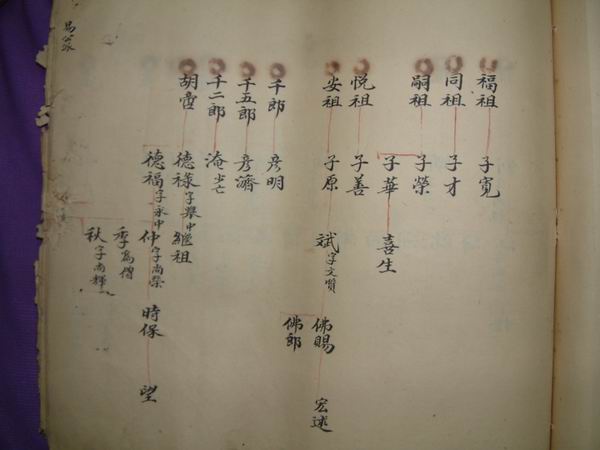 福祖 子寬
同祖 子才
嗣祖 子榮
子華 喜生
悦祖 子善
安祖 子原 斌字文質 佛賜 宏述
佛郎
千郎 彦明
千五郎 彦濟
千二郎 淹少亡
胡 德祿字舉中 繼祖
德福字永中 仲字尚榮 時保 望
季為僧
秋字尚輝